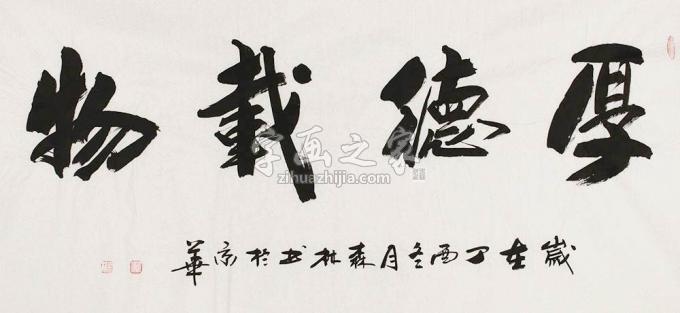 厚德載物
歲在丁酉冬月森林书於京華
字画之家
zihuazhijia.com